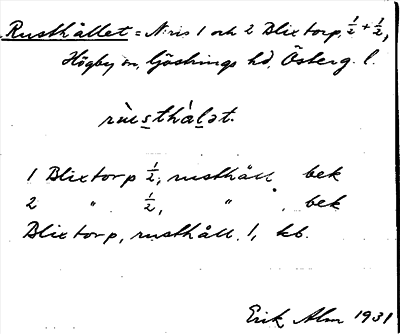 Rusthållet = N:ris 1 och 2 Blixtorp, ½ + ½,
Högby sn, Göstrings hd, Österg. l.
1 Blixtorp ½, rusthåll, bek
2 " ½, " , bek
Blixtorp, rusthåll, 1, kb.
Erik Alm 1931